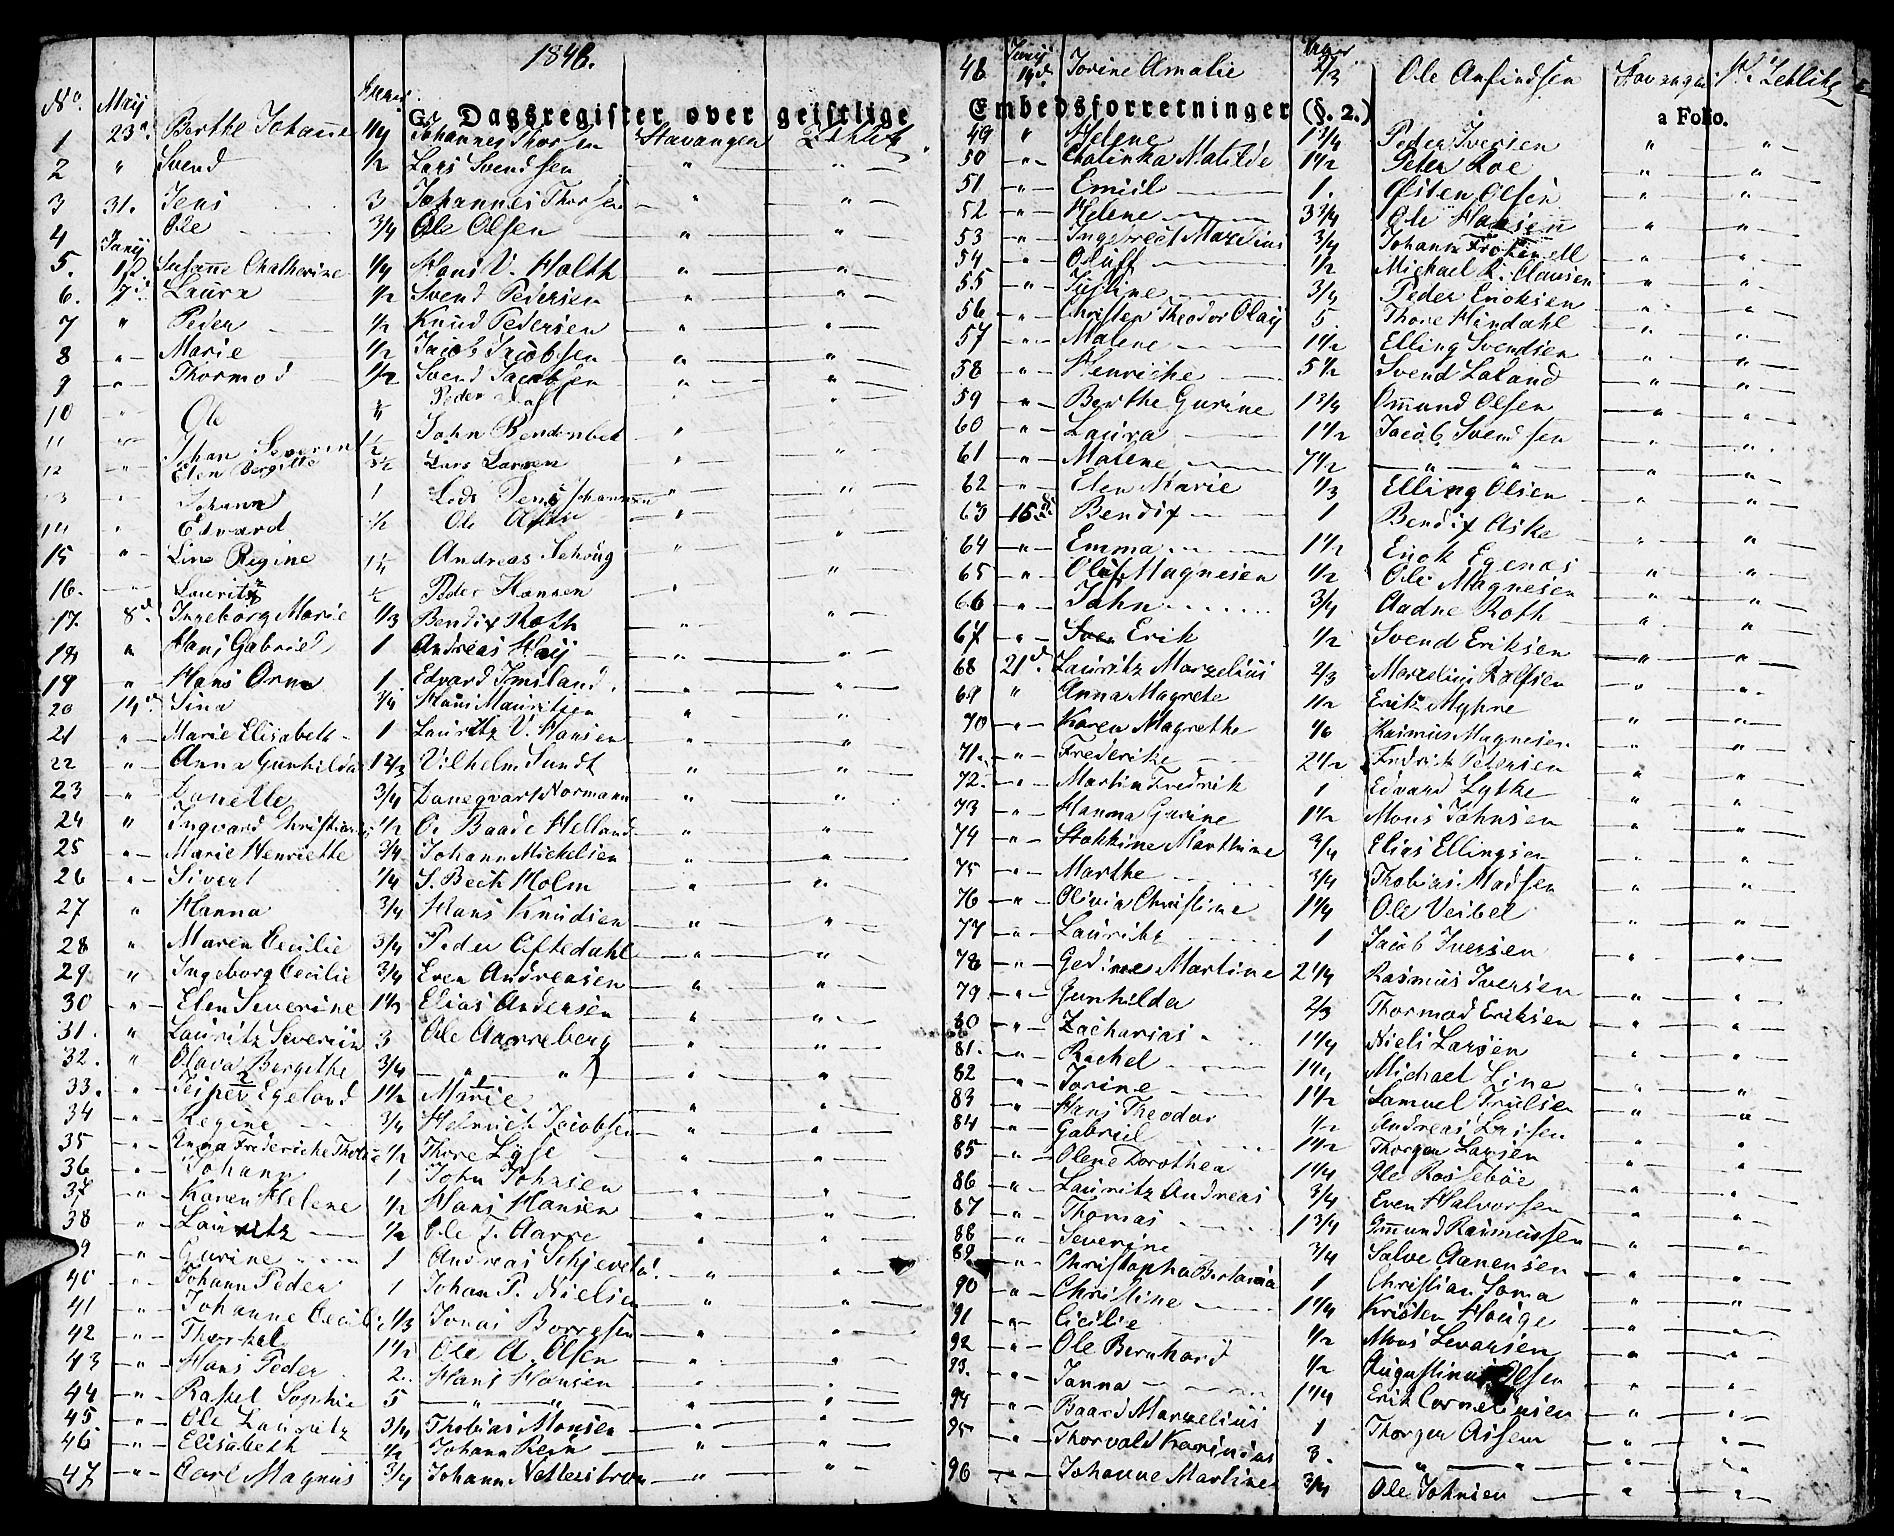 1846.
No. May Aar
G. Dagsregister over geistlige
1 23d. Berthe Johanne 1/4 Johannes Thorsen Stavanger Zetlitz
2 " Svend 1/2 Lars Svendsen " "
3 31. Jens 3 Johannes Thorsen " "
4 Ole 3/4 Ole Olsen " "
Junij
5. 1d. Susanne Chatherine 1/4 Hans V. Holth " "
6. 7d. Laura 1/2 Svend Pedersen " "
7 " Peder 1/2 Knud Pedersen " "
8 " Marie 1/2 Jacob Jacobsen " "
9 " Thormod 1 1/2 Svend Jacobsen " "
10 " Ole Peder " "
11 " Johan Severin 1/2 John " "
12 " Elen Bergitte Lars Larsen " "
13 " Johann 1 Lods Jens Johannesen " "
14 " Edvard 1/2 Ole " "
15 " Line Regine 1 1/4 Andreas Schoug " "
16. Lauritz 1/2 Peder Hansen "
17. 8d. Ingeborg Marie 1/3 Bendix Roth " "
18 " Hans Gabriel 1 Andreas Høy " "
19 " Hans Arn 1 Edvard Imsland " "
20 14d. Sina 3/4 Hans Mauritzen " "
21 " Marie Elisabeth 1 Lauritz V. Hansen " "
22 " Anna Gunhilda 1 2/3 Vilhelm Sundt " "
23 " Danette 3/4 Danequart Normann " "
24 " Ingvard Christian 1/2 O. Baade Helland " "
25 " Marie Henriette 3/4 Johann Mickelsen " "
26 " Sivert 1/4 S. Bech Holm " "
27 " Hanna 3/4 Hans Knudsen " "
28 " Maren Cecilie 3/4 Peder Eftedahl " "
29 " Ingeborg Cecilie 3/4 Even Andreasen " "
30 " Elen Severine 1 1/2 Elias Andersen " "
31. " Lauritz Severin 3 Ole Aarreberg " "
32. " Olava Bergithe 3/4 " " " "
33. " Jesper Egeland 1 1/2 Marie " "
34 " Regine 3/4 Helmich Jacobsen " "
35 " Anna Frederiche 1/2 Thore Lyse " "
36 " Johann 1 John Johnsen " "
37 " Karen Helene 1/2 Hans Hansen " "
38 " Lauritz 1/2 Ole T. Aarre " "
9 " Gurine 1 Andreas " "
40 " Johann Peder 1 Johan P. Nielsen " "
41 " Johanne Cecilie 1/3 Jonas Borresen " "
42 " Thorkel 1 1/2 Ole A. Olsen " "
43 " Hans Peder 2. Hans Hansen " "
44 " Rakel Sophie 5 " " " "
45. " Ole Lauritz 3/4 Thobias Monsen " "
46 " Elisabeth 1/2 Johann Rein " "
47 " Carl Magnus 3/4 Johann Netterstrøm " "
Embedsforretninger (§. 2.) a Folio.
Junij Aar
48 14d. Jorine Amalie 2/3 Ole Anfindsen Stavanger Zetlitz
49 " Helene 1 3/4 Peder Iversen " "
50 " Chatinka Matilde 1 1/2 Peter Roe " "
51 " Emiel 1. Østen Olsen " "
52 " Helene 3 3/4 Ole Hansen " "
53 " Ingebrect Marelius 3/4 Johann " "
54 " Oluff 1/2 Michael K. Clausen " "
55 " Justine 3/4 Peder Enoksen " "
56 " Christen Theodor Olaij 5. Thore Hindahl " "
57 " Malene 1 1/2 Elling Svendsen " "
58 " Henriche 5 1/2 Svend Laland " "
59 " Berthe Gurine 1 3/4 Ommund Olsen " "
60 " Laura 1 1/2 Jacob Svendsen " "
61 " Malene 7 1/2 " " " "
62 " Elen Marie 1/3 Elling Olsen " "
63 15d. Bendix 1 Bendix Aske " "
64 " Emma 1 1/2 Enok Egenes " "
65 " Oluf Magnesen 1/2 Ole Magnesen " "
66 " John 3/4 Aadne Roth " "
67 " Erik 1/2 Svend Eriksen " "
68 21d. Lauritz Marzelius 2/3 Marzelius Rolfsen " "
69 " Anna Magrete 1 1/2 Erik Myhre " "
70 " Karen Magrethe 1/6 Rasmus Magnesen " "
71. " Frederike 2 1/2 Fredrik Petersen " "
72. " Martin Fredrik 1 Edvard Lytke " "
73 " Hanna Gurine 1 1/2 Mons Johnsen " "
74 " Marthine 3/4 Elias Ellingsen " "
75 " Marthe 3/4 Thobias Madsen " "
76 " Olivia Christine 1 1/4 Ole Veibel " "
77 " Lauritz 1 Jacob Iversen " "
78 " Martine 2 1/4 Rasmus Iversen " "
79 " Gunhilda 2/3 Thormod Eriksen " "
80 " Zacharias 1 1/4 Niels Larsen " "
81. " Rachel 1 1/4 Michael Line " "
82 " Jorine 1 1/2 Samuel Trulsen " "
83 " Hans Theodor 1/2 Andreas Larsen " "
84 " Gabriel 1 1/2 Thorger Larsen " "
85 " Olene Dorothea 1 1/4 Ole Rossebøe " "
86 " Lauritz Andreas 3/4 Even Halvorsen " "
87 " Thomas 1 3/4 Ommund Rasmussen " "
88 " Severine 3/4 Salve Aanensen " "
89. " Christopha 1 Christian Soma " "
90 " Christine 1 1/4 Kristen Houge " "
91 " Cicilie 1/2 Mons Levarsen " "
92 " Ole Bernhard 1/2 Augustinus Olsen " "
93. " Janna 1 1/4 Erik Cornelinsen " "
94 " Baard Marzelius 1 Thorger Assem " "
95 " Thorvald Karinius 3. " " " "
96 " Johanne Martine 3/4 Ole Johnsen " "